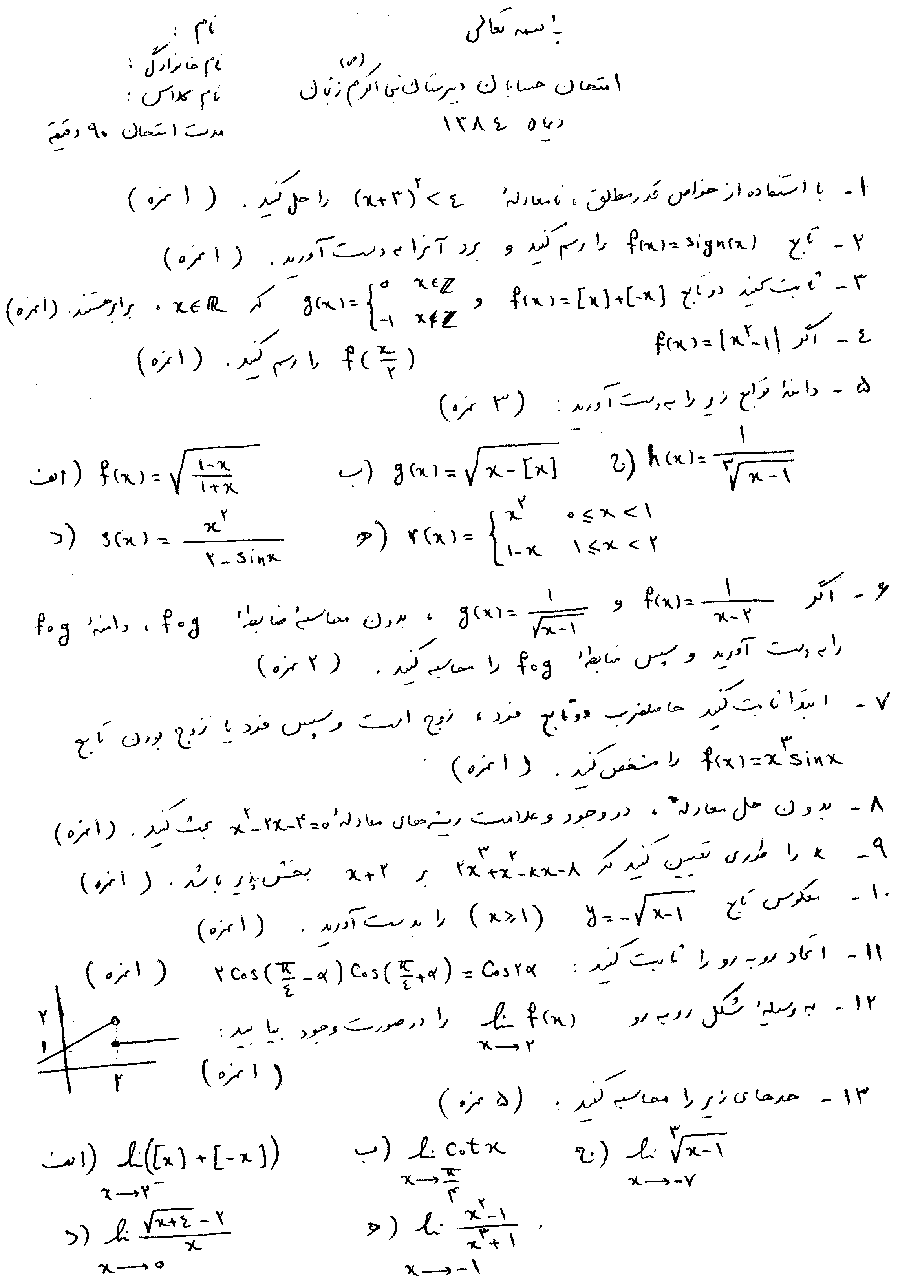 باسمه تعالی
نام :
نام خانوادگی :
نام کلاس :
مدت امتحان ۹۰ دقیقه
امتحان حسابان دبیرستان نبی اکرم (ص)
دیماه ۱۳۸٤
۱- با استفاده از خواص قدر مطلق ، نامعادلهٔ (x+۳)^۲ < ٤ را حل کنید . (۱ نمره)
۲- تابع f(x)=sign(x) را رسم کنید و برد آنرا به دست آورید . (۱ نمره)
۳- ثابت کنید دو تابع f(x)=[x]+[-x] و g(x)={۰ x∈ℤ ، -۱ x∉ℤ که x∈ℝ ، برابر هستند . (۱ نمره)
٤- اگر f(x)=|x^۲-۱|
f(x/۲) را رسم کنید . (۱ نمره)
۵- دامنهٔ توابع زیر را به دست آورید : (۳ نمره)
الف) f(x)=√((۱-x)/(۱+x)) ب) g(x)=√(x-[x]) ج) h(x)=۱/∛(x-۱)
د) s(x)=x^۲/(۲-sinx) ه) r(x)={x^۲ ۰≤x<۱ ، ۱-x ۱≤x<۲
۶- اگر f(x)=۱/(x-۲) و g(x)=۱/√(x-۱) ، بدون محاسبهٔ ضابطهٔ fog ، دامنهٔ fog
را به دست آورید و سپس ضابطهٔ fog را محاسبه کنید . (۲ نمره)
۷- ابتدا ثابت کنید حاصلضرب دو تابع فرد ، زوج است و سپس فرد یا زوج بودن تابع
f(x)=x^۳sinx را مشخص کنید . (۱ نمره)
۸- بدون حل معادله ، در وجود و علامت ریشه‌های معادلهٔ x^۲-۲x-۳=۰ بحث کنید . (۱ نمره)
۹- k را طوری تعیین کنید که ۲x^۳+x^۲-kx-۸ بر x+۲ بخش پذیر باشد . (۱ نمره)
۱۰- معکوس تابع y=-√(x-۱) (x≥۱) را بدست آورید . (۱ نمره)
۱۱- اتحاد روبه رو را ثابت کنید : ۲Cos(π/٤-α)Cos(π/٤+α)=Cos۲α (۱ نمره)
۱۲- به وسیلهٔ شکل روبه رو lim f(x) x→۲ را در صورت وجود بیابید :
(۱ نمره)
۲
۱
۲
۱۳- حدهای زیر را محاسبه کنید . (۵ نمره)
الف) lim([x]+[-x]) x→۲⁻ ب) lim cotx x→π/۳ ج) lim ∛(x-۱) x→-۷
د) lim (√(x+٤)-۲)/x x→۰ ه) lim (x^۲-۱)/(x^۳+۱) x→-۱